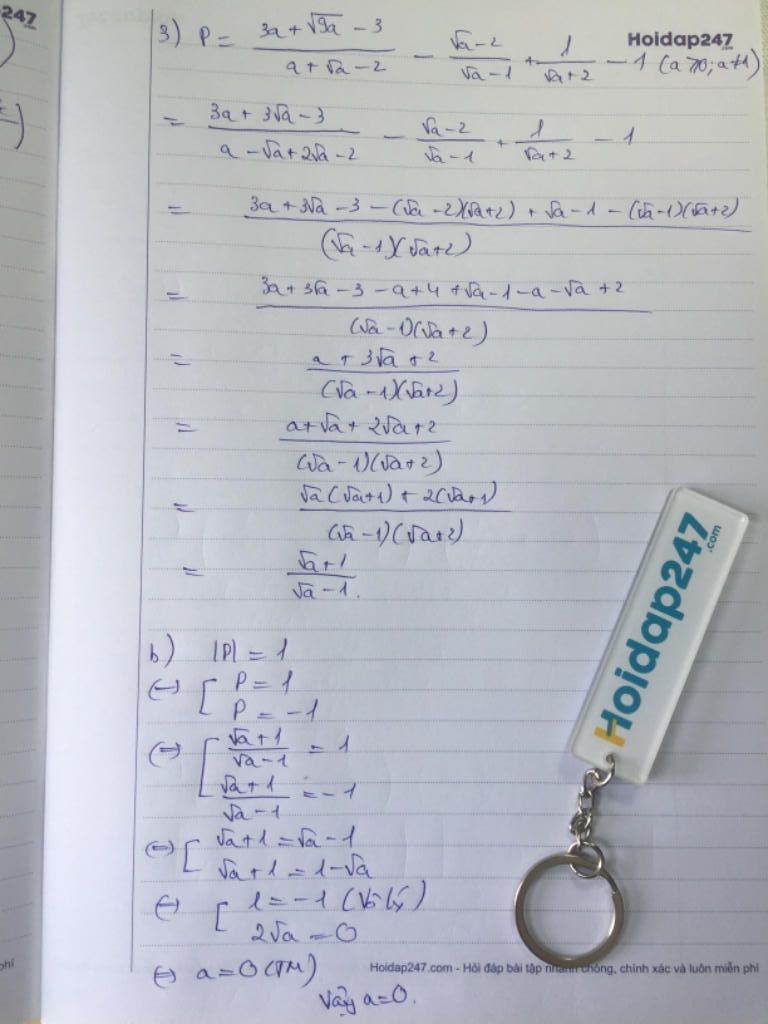 247
Hoidap247
.com
3) P = (3a + √9a - 3)/(a + √a - 2) - (√a - 2)/(√a - 1) + 1/(√a + 2) - 1 (a ≥ 0; a ≠ 1)
= (3a + 3√a - 3)/(a - √a + 2√a - 2) - (√a - 2)/(√a - 1) + 1/(√a + 2) - 1
= (3a + 3√a - 3 - (√a - 2)(√a + 2) + √a - 1 - (√a - 1)(√a + 2))/((√a - 1)(√a + 2))
= (3a + 3√a - 3 - a + 4 + √a - 1 - a - √a + 2)/((√a - 1)(√a + 2))
= (a + 3√a + 2)/((√a - 1)(√a + 2))
= (a + √a + 2√a + 2)/((√a - 1)(√a + 2))
= (√a(√a + 1) + 2(√a + 1))/((√a - 1)(√a + 2))
= (√a + 1)/(√a - 1).
b) |P| = 1
(=) [ P = 1
P = -1
(=) [ (√a + 1)/(√a - 1) = 1
(√a + 1)/(√a - 1) = -1
(=) [ √a + 1 = √a - 1
√a + 1 = 1 - √a
(=) [ 1 = -1 (Vô lý)
2√a = 0
(=) a = 0 (TM)
Vậy a = 0.
Hoidap247.com
phí
Hoidap247.com - Hỏi đáp bài tập nhanh chóng, chính xác và luôn miễn phí